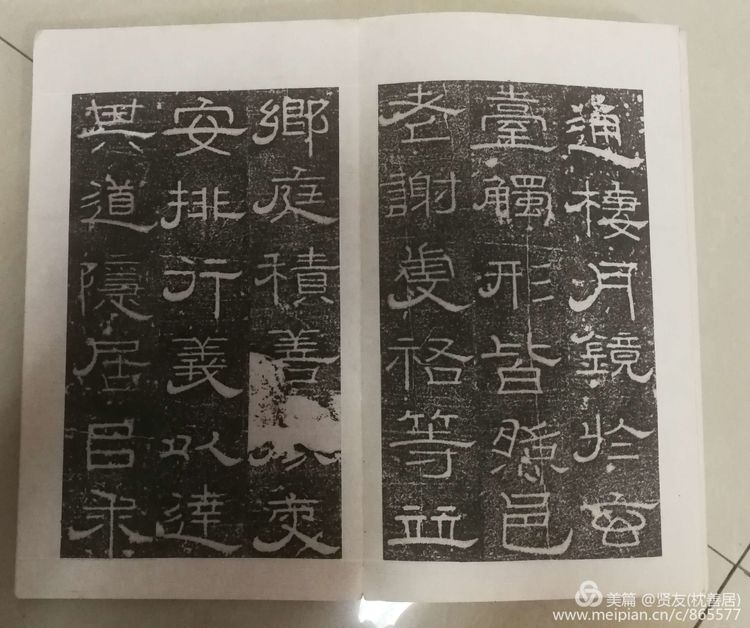 通棲月鏡於玄
臺觸形皆應邑
老謝叟格等並
鄉庭積善奕
安排行義以達
其道隱居㠯求
美篇 @贤友(枕善居)
www.meipian.cn/c/865577